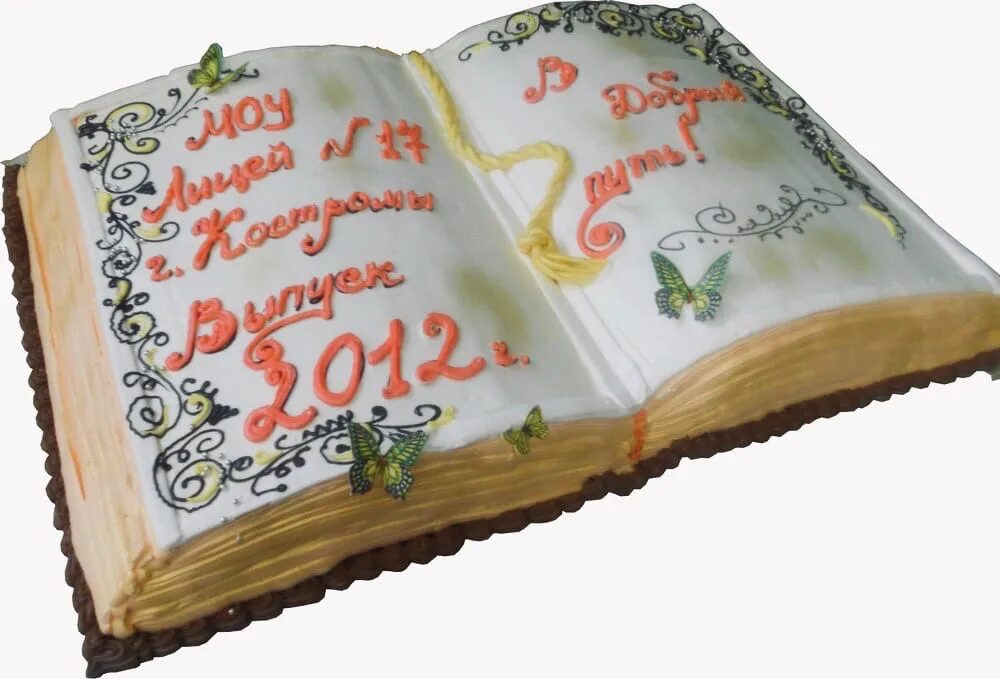 МОУ
Лицей №17
г. Костромы
Выпуск
2012 г.
В
Добрый
путь!